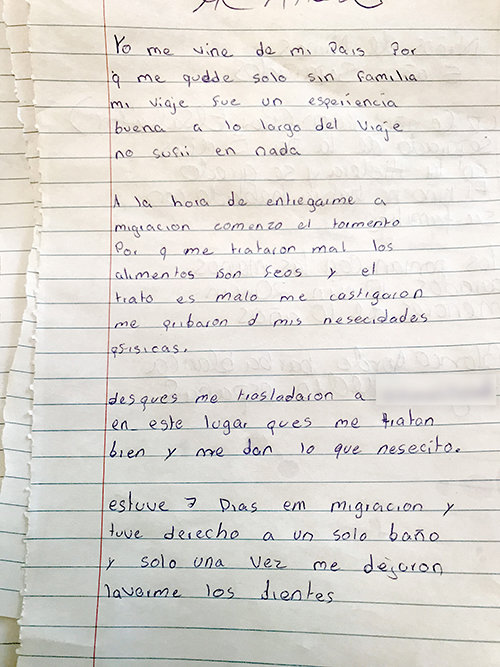 Yo me vine de mi Pais Por
q me quede solo sin familia
mi viaje fue un esperiencia
buena a lo largo del viaje
no sufri en nada
A la hora de entregarme a
migracion comenzo el tormento
Por q me trataron mal los
alimentos son feos y el
trato es malo me castigaron
me pribaron d mis nesecidades
qfisicas.
desques me trasladaron a
en este lugar ques me tratan
bien y me dan lo que nesecito.
estuve 7 Dias em migracion y
tuve derecho a un solo baño
y solo una vez me dejaron
lavarme los dientes